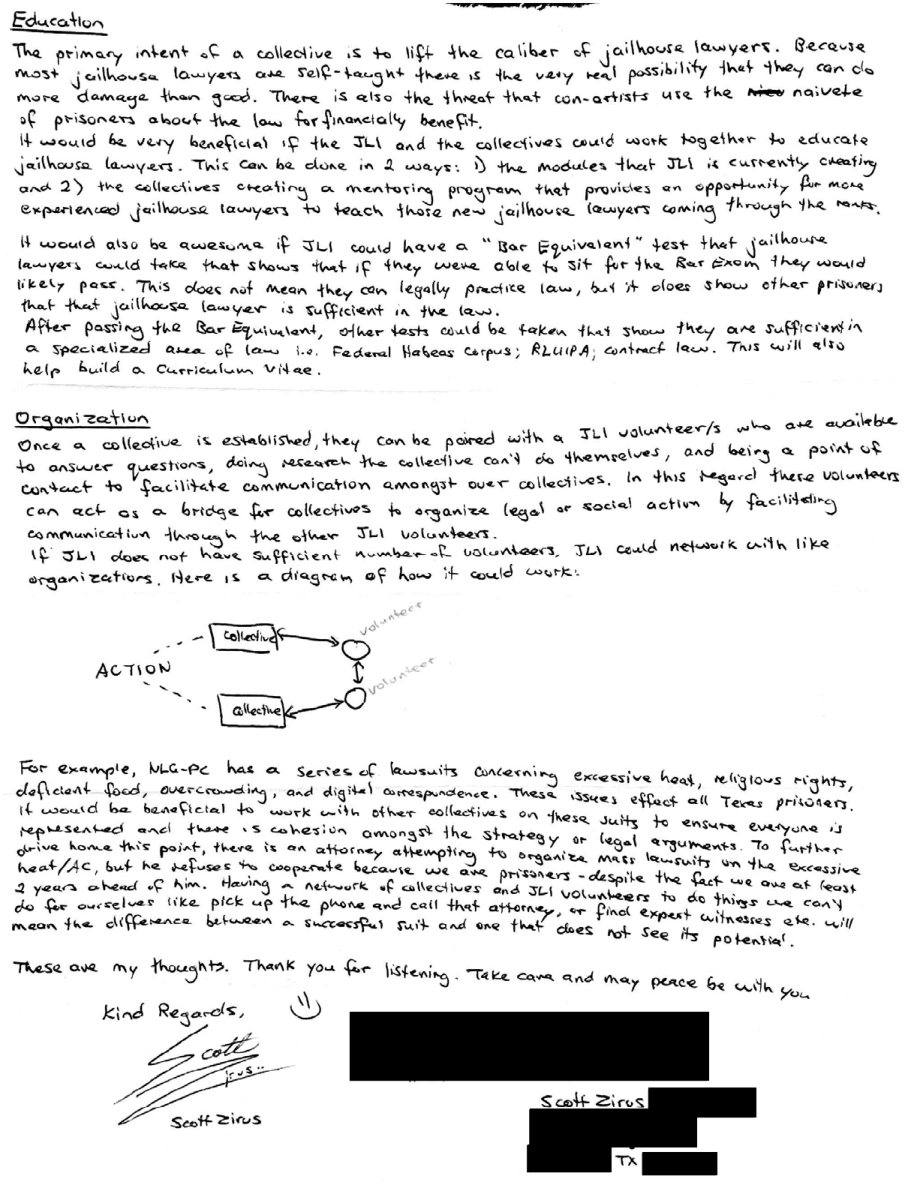 Education
The primary intent of a collective is to lift the caliber of jailhouse lawyers. Because
most jailhouse lawyers are self-taught there is the very real possibility that they can do
more damage than good. There is also the threat that con-artists use the naivete
of prisoners about the law for financially benefit.
It would be very beneficial if the JLI and the collectives could work together to educate
jailhouse lawyers. This can be done in 2 ways: 1) the modules that JLI is currently creating
and 2) the collectives creating a mentoring program that provides an opportunity for more
experienced jailhouse lawyers to teach those new jailhouse lawyers coming through the ranks.
It would also be awesome if JLI could have a "Bar Equivalent" test that jailhouse
lawyers could take that shows that if they were able to sit for the Bar Exam they would
likely pass. This does not mean they can legally practice law, but it does show other prisoners
that that jailhouse lawyer is sufficient in the law.
After passing the Bar Equivalent, other tests could be taken that show they are sufficient in
a specialized area of law i.e. Federal Habeas Corpus; RLUIPA; contract law. This will also
help build a Curriculum Vitae.
Organization
Once a collective is established, they can be paired with a JLI volunteer/s who are available
to answer questions, doing research the collective can't do themselves, and being a point of
contact to facilitate communication amongst over collectives. In this regard these volunteers
can act as a bridge for collectives to organize legal or social action by facilitating
communication through the other JLI volunteers.
If JLI does not have sufficient number of volunteers, JLI could network with like
organizations. Here is a diagram of how it could work:
volunteer
collective
ACTION
volunteer
collective
For example, NLG-PC has a series of lawsuits concerning excessive heat, religious rights,
deficient food, overcrowding, and digital correspondence. These issues effect all Texas prisoners.
It would be beneficial to work with other collectives on these suits to ensure everyone is
represented and there is cohesion amongst the strategy or legal arguments. To further
drive home this point, there is an attorney attempting to organize mass lawsuits on the excessive
heat/AC, but he refuses to cooperate because we are prisoners - despite the fact we are at least
2 years ahead of him. Having a network of collectives and JLI volunteers to do things we can't
do for ourselves like pick up the phone and call that attorney, or find expert witnesses etc. will
mean the difference between a successful suit and one that does not see its potential.
These are my thoughts. Thank you for listening. Take care and may peace be with you
Kind Regards,
Scott
Scott Zirus
Scott Zirus
TX